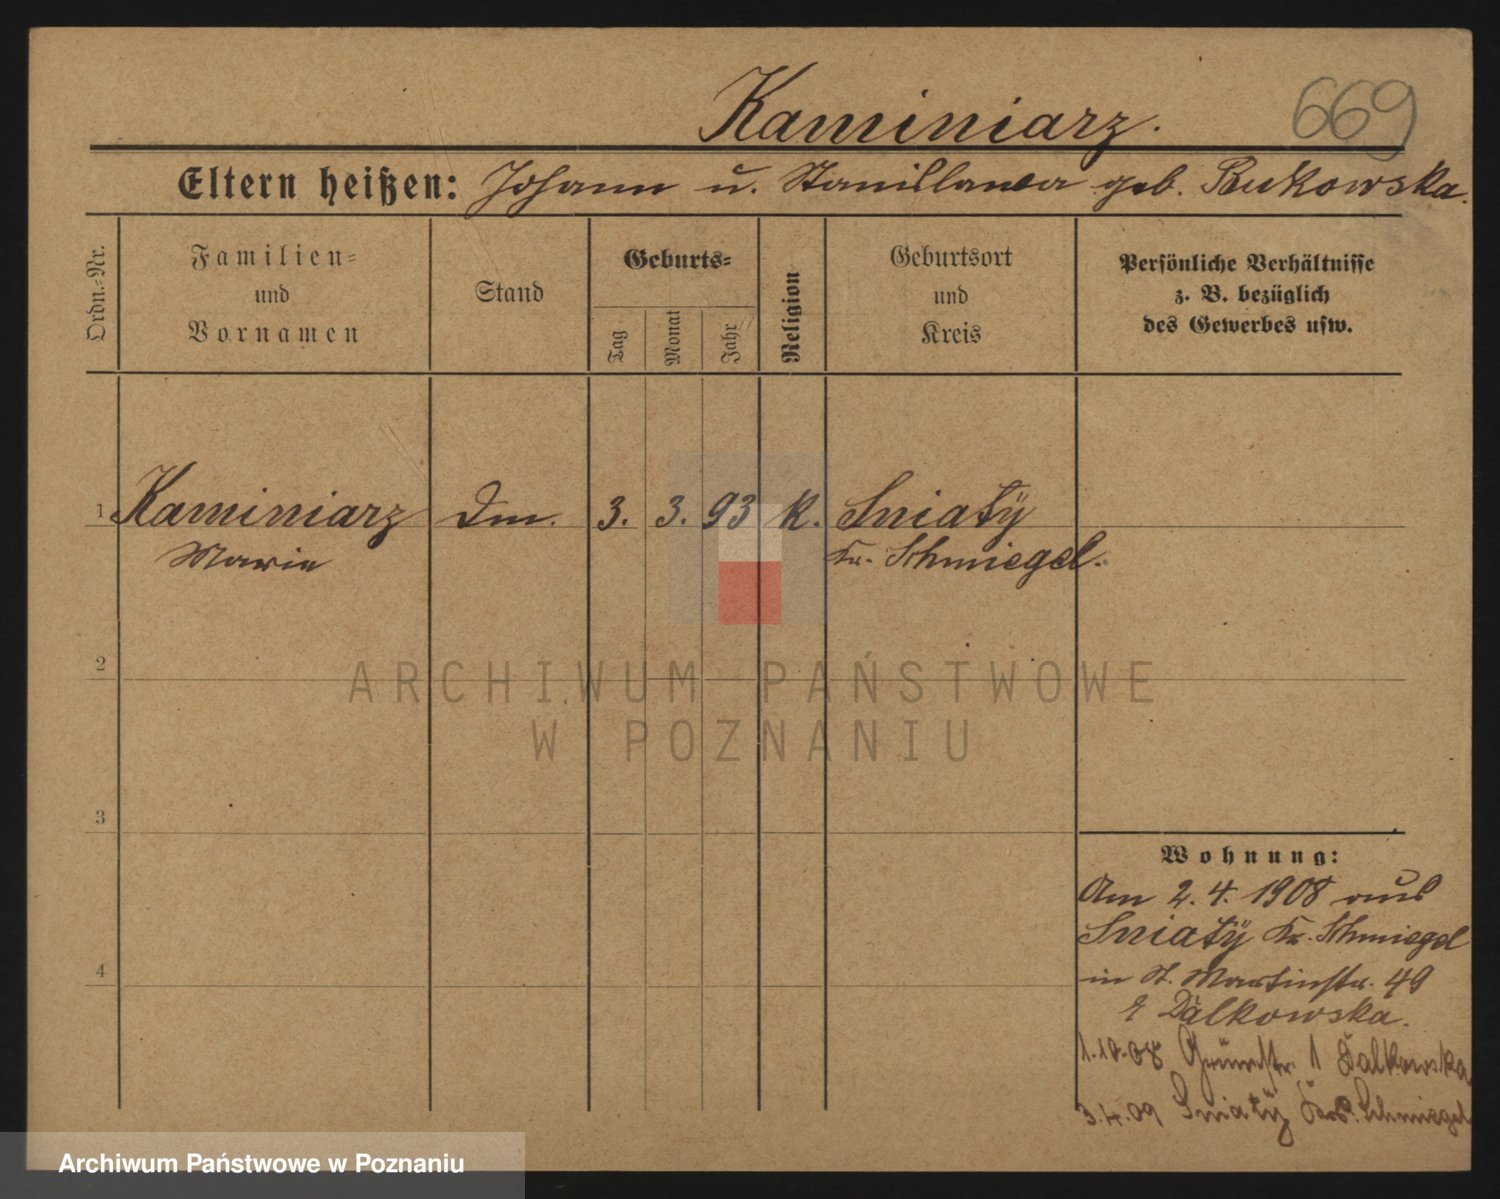 Kaminiarz.
669
Eltern heißen: Johann u. Stanislawa geb. Bukowska.
Ordn.-Nr.
Familien-
und
Vornamen
Stand
Geburts-
Tag
Monat
Jahr
Religion
Geburtsort
und
Kreis
Persönliche Verhältnisse
z. B. bezüglich
des Gewerbes usw.
1 Kaminiarz Dm. 3. 3. 93 k. Sniatÿ
Marie Kr. Schmiegel.
2
ARCHIWUM PAŃSTWOWE
W POZNANIU
3
Wohnung:
Am 2. 4. 1908 aus
Sniatÿ Kr. Schmiegel
4
in St. Martinstr. 49
Dalkowska.
1.10.08 Grünstr. 1 Dalkowska
3.4.09 Sniatÿ Schmiegel
Archiwum Państwowe w Poznaniu